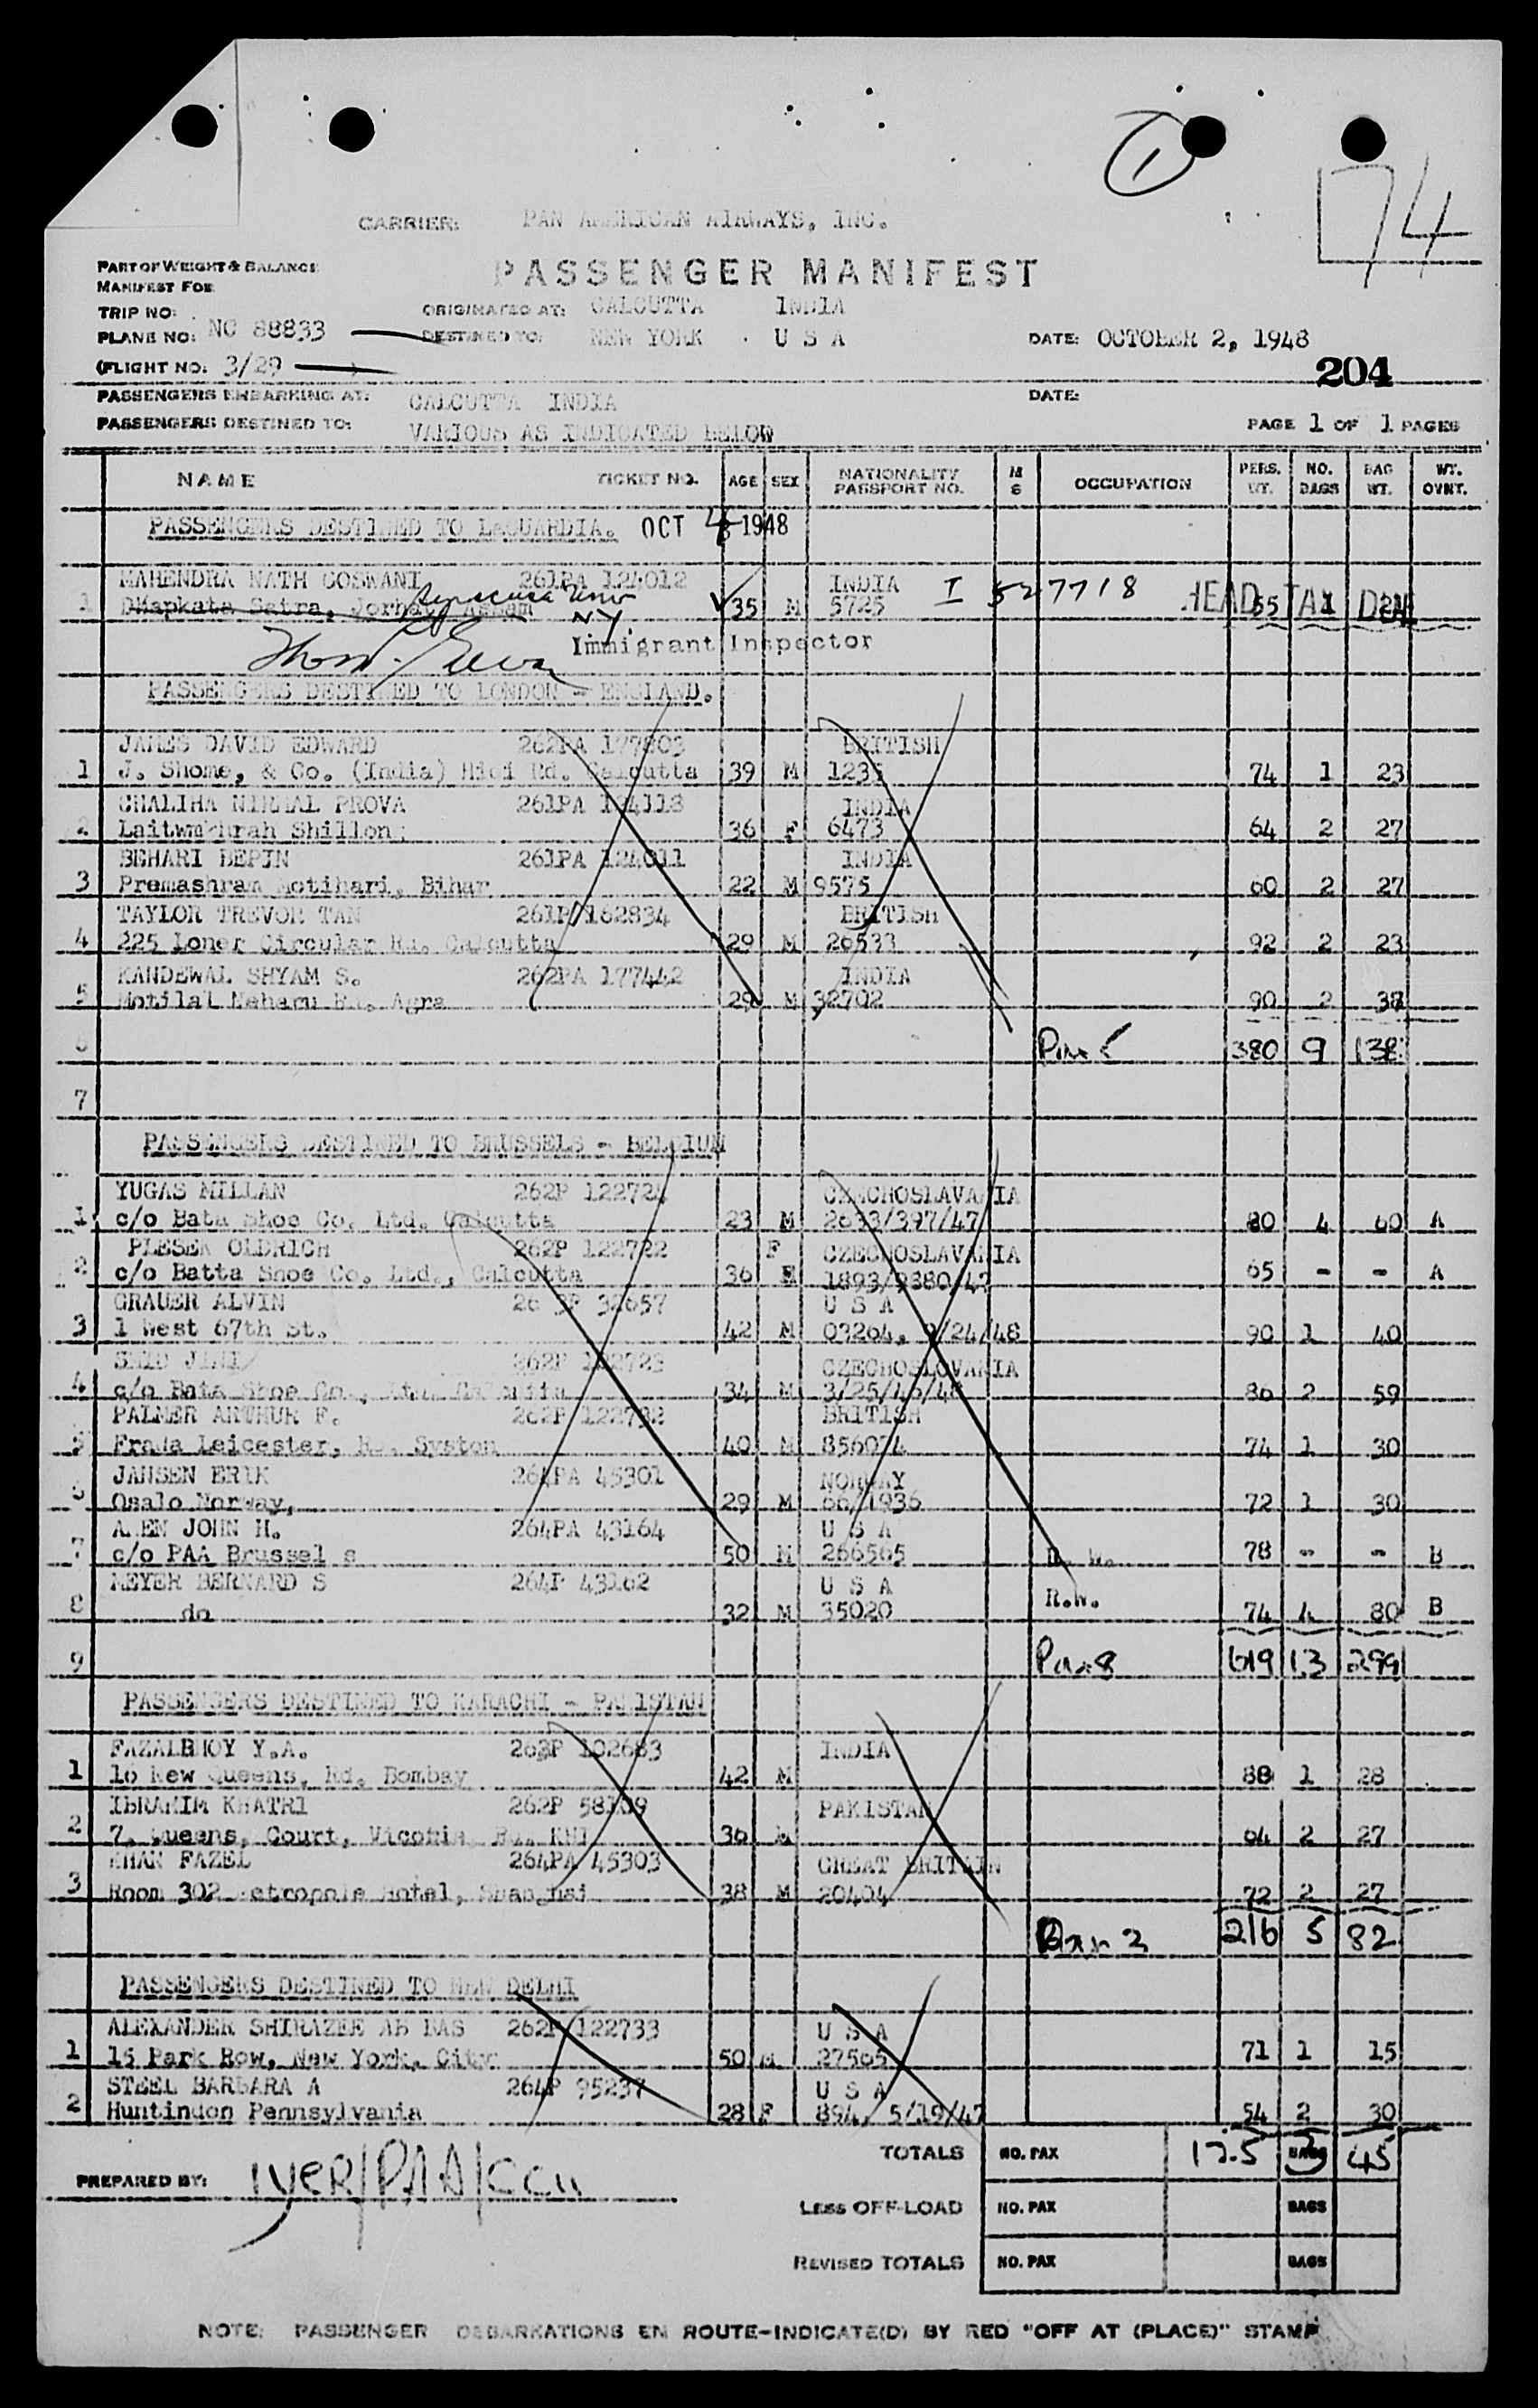 1
74
CARRIER: PAN AMERICAN AIRWAYS, INC.
PART OF WEIGHT & BALANCE
MANIFEST FOR
PASSENGER MANIFEST
TRIP NO:
ORIGINATED AT: CALCUTTA INDIA
PLANE NO: NC 88833
DESTINED TO: NEW YORK . U S A
DATE: OCTOBER 2, 1948
(FLIGHT NO: 3/29 )
204
PASSENGERS EMBARKING AT: CALCUTTA INDIA
DATE:
PASSENGERS DESTINED TO: VARIOUS AS INDICATED BELOW
PAGE 1 OF 1 PAGES
NAME TICKET NO. AGE SEX NATIONALITY PASSPORT NO. M S OCCUPATION PERS. WT. NO. BAGS BAG WT. WT. OVNT.
PASSENGERS DESTINED TO LAGUARDIA. OCT 1948
MAHENDRA NATH GOSWANI 261PA 124012 INDIA I 527718 HEAD TAX
1 Satra, Jorhat, Assam Syracuse Univ 35 M 5725
N.Y.
Immigrant Inspector
PASSENGERS DESTINED TO LONDON - ENGLAND.
JAMES DAVID EDWARD 262PA 177803 BRITISH
1 J. Shome, & Co. (India) Rd. Calcutta 39 M 1235 74 1 23
CHALIHA NIRMAL PROVA 261PA 124118 INDIA
2 Laitwmkhrah Shillong 36 F 6473 64 2 27
BEHARI BEPIN 261PA 124011 INDIA
3 Premashram Motihari, Bihar 22 M 9575 60 2 27
TAYLOR TREVOR TAN 261P 162834 BRITISH
4 225 Loner Circular Rd. Calcutta 29 M 26533 92 2 23
KANDEWAL SHYAM S. 262PA 177442 INDIA
5 Motilal Neharu Rd, Agra 29 M 32702 90 2 38
6 380 9 138
7
PASSENGERS DESTINED TO BRUSSELS - BELGIUM
YUGAS MILLAN 262P 122724 CZECHOSLAVAKIA
1 c/o Bata Shoe Co. Ltd. Calcutta 23 M 2633/397/47 80 4 60 A
PLESEK OLDRICH 262P 122722 F CZECHOSLAVAKIA
2 c/o Batta Shoe Co. Ltd., Calcutta 36 1893/9380/47 65 - - A
GRAUER ALVIN 26 3P 32657 U S A
3 1 West 67th St. 42 M 03264, 9/24/48 90 1 40
262P 122723 CZECHOSLOVAKIA
4 c/o Bata Shoe Co., Ltd. Calcutta 34 M 3/25/46/48 86 2 59
PALMER ARTHUR F. 262P 122732 BRITISH
5 Leicester, Rd. Syston 40 M 856074 74 1 30
JANSEN ERIK 264PA 45301 NORWAY
6 Osalo Norway, 29 M 66/1936 72 1 30
JOHN H. 264PA 43164 U S A
7 c/o PAA Brussel s 50 M 266565 R. W. 78 - - B
MEYER BERNARD S 264P 43162 U S A
8 do 32 M 35020 R.W. 74 4 80 B
9 Pax 8 619 13 299
PASSENGERS DESTINED TO KARACHI - PAKISTAN
FAZALBHOY Y.A. 263P 102683 INDIA
1 16 New Queens, Rd. Bombay 42 M 88 1 28
IBRAHIM KHATRI 262P 58109 PAKISTAN
2 7, Queens, Court, Vicotria Rd. KHI 36 M 64 2 27
KHAN FAZEL 264PA 45303 GREAT BRITAIN
3 Room 302 Metropole Hotel, Shanghai 38 M 20404 72 2 27
216 5 82
PASSENGERS DESTINED TO NEW DELHI
ALEXANDER SHIRAZEE AB BAS 262P 122733 U S A
1 15 Park Row, New York, City 50 M 27565 71 1 15
STEEL BARBARA A 264P 95237 U S A
2 Huntindon Pennsylvania 28 F 894, 5/19/47 54 2 30
TOTALS NO. PAX 125 BAGS 3 45
PREPARED BY: IYER/PAA/CCU
LESS OFF-LOAD NO. PAX BAGS
REVISED TOTALS NO. PAX BAGS
NOTE: PASSENGER DEBARKATIONS EN ROUTE-INDICATE(D) BY RED "OFF AT (PLACE)" STAMP